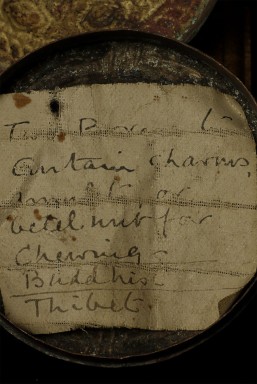 Tin Box to
Contain charms,
amulets or
betel nut for
Chewing -
Buddhist
Thibet.